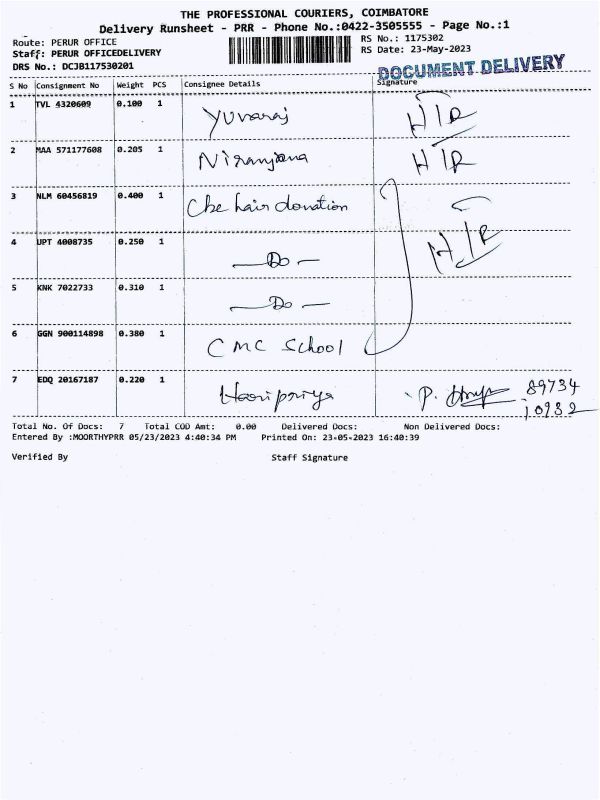 THE PROFESSIONAL COURIERS, COIMBATORE
Delivery Runsheet - PRR - Phone No.:0422-3505555 - Page No.:1
Route: PERUR OFFICE
RS No.: 1175302
Staff: PERUR OFFICEDELIVERY
RS Date: 23-May-2023
DRS No.: DCJB117530201
DOCUMENT DELIVERY
S No Consignment No Weight PCS Consignee Details Signature
1 TVL 4320609 0.100 1 Yuvaraj H/R
2 MAA 571177608 0.205 1 Niranjana H/R
3 NLM 60456819 0.400 1 Cbe hair donation
4 UPT 4008735 0.250 1 — Do — H/R
5 KNK 7022733 0.310 1 — Do —
6 GGN 900114898 0.380 1 CMC School
7 EDQ 20167187 0.220 1 Haripriya P. 89734
10932
Total No. Of Docs: 7 Total COD Amt: 0.00 Delivered Docs: Non Delivered Docs:
Entered By :MOORTHYPRR 05/23/2023 4:40:34 PM Printed On: 23-05-2023 16:40:39
Verified By Staff Signature